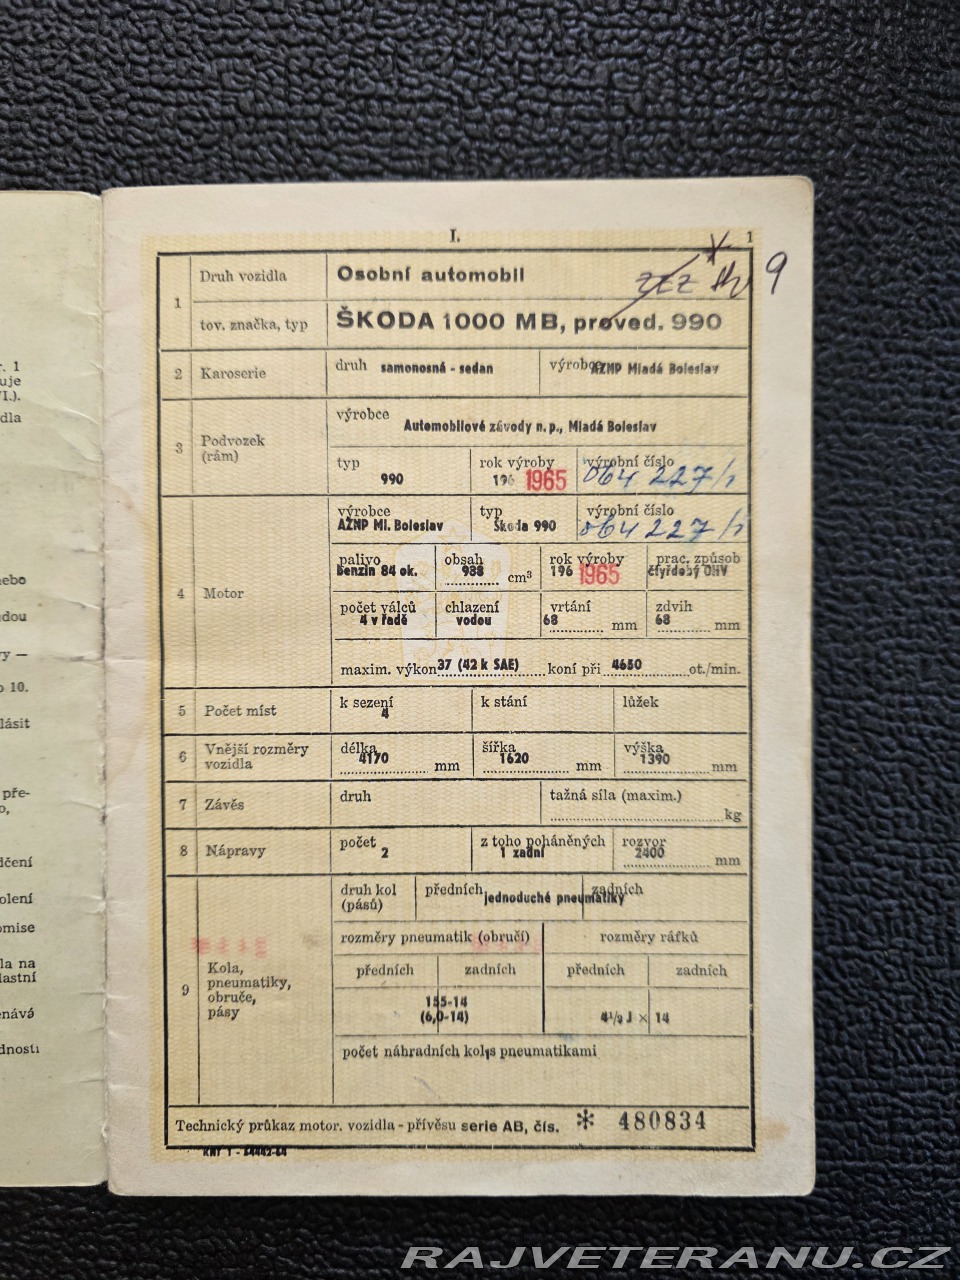 r. 1
uje
VI.).
dla
nebo
udou
vy —
o 10.
lásit
pře-
o,
dčení
olení
omise
la na
lastní
enává
dnosti
I. 1
1 Druh vozidla Osobní automobil
9
tov. značka, typ ŠKODA 1000 MB, proved. 990
2 Karoserie druh samonosná - sedan výrobce AZNP Mladá Boleslav
3 Podvozek (rám) výrobce
Automobilové závody n. p., Mladá Boleslav
typ rok výroby výrobní číslo
990 196 1965 064 227/1
4 Motor výrobce typ výrobní číslo
AZNP Ml. Boleslav Škoda 990 064 227/1
palivo obsah rok výroby prac. způsob
benzin 84 ok. 988 cm³ 196 1965 čtyřdobý OHV
počet válců chlazení vrtání zdvih
4 v řadě vodou 68 mm 68 mm
maxim. výkon 37 (42 k SAE) koní při 4650 ot./min.
5 Počet míst k sezení k stání lůžek
4
6 Vnější rozměry vozidla délka šířka výška
4170 mm 1620 mm 1390 mm
7 Závěs druh tažná síla (maxim.)
kg
8 Nápravy počet z toho poháněných rozvor
2 1 zadní 2400 mm
9 Kola, pneumatiky, obruče, pásy
druh kol (pásů) předních zadních
jednoduché pneumatiky
rozměry pneumatik (obručí) rozměry ráfků
předních zadních předních zadních
155-14
(6,0-14) 4¹/₂ J × 14
počet náhradních kol s pneumatikami
Technický průkaz motor. vozidla - přívěsu serie AB, čís. * 480834
KNT 1 - 64442-64
RAJVETERANU.CZ